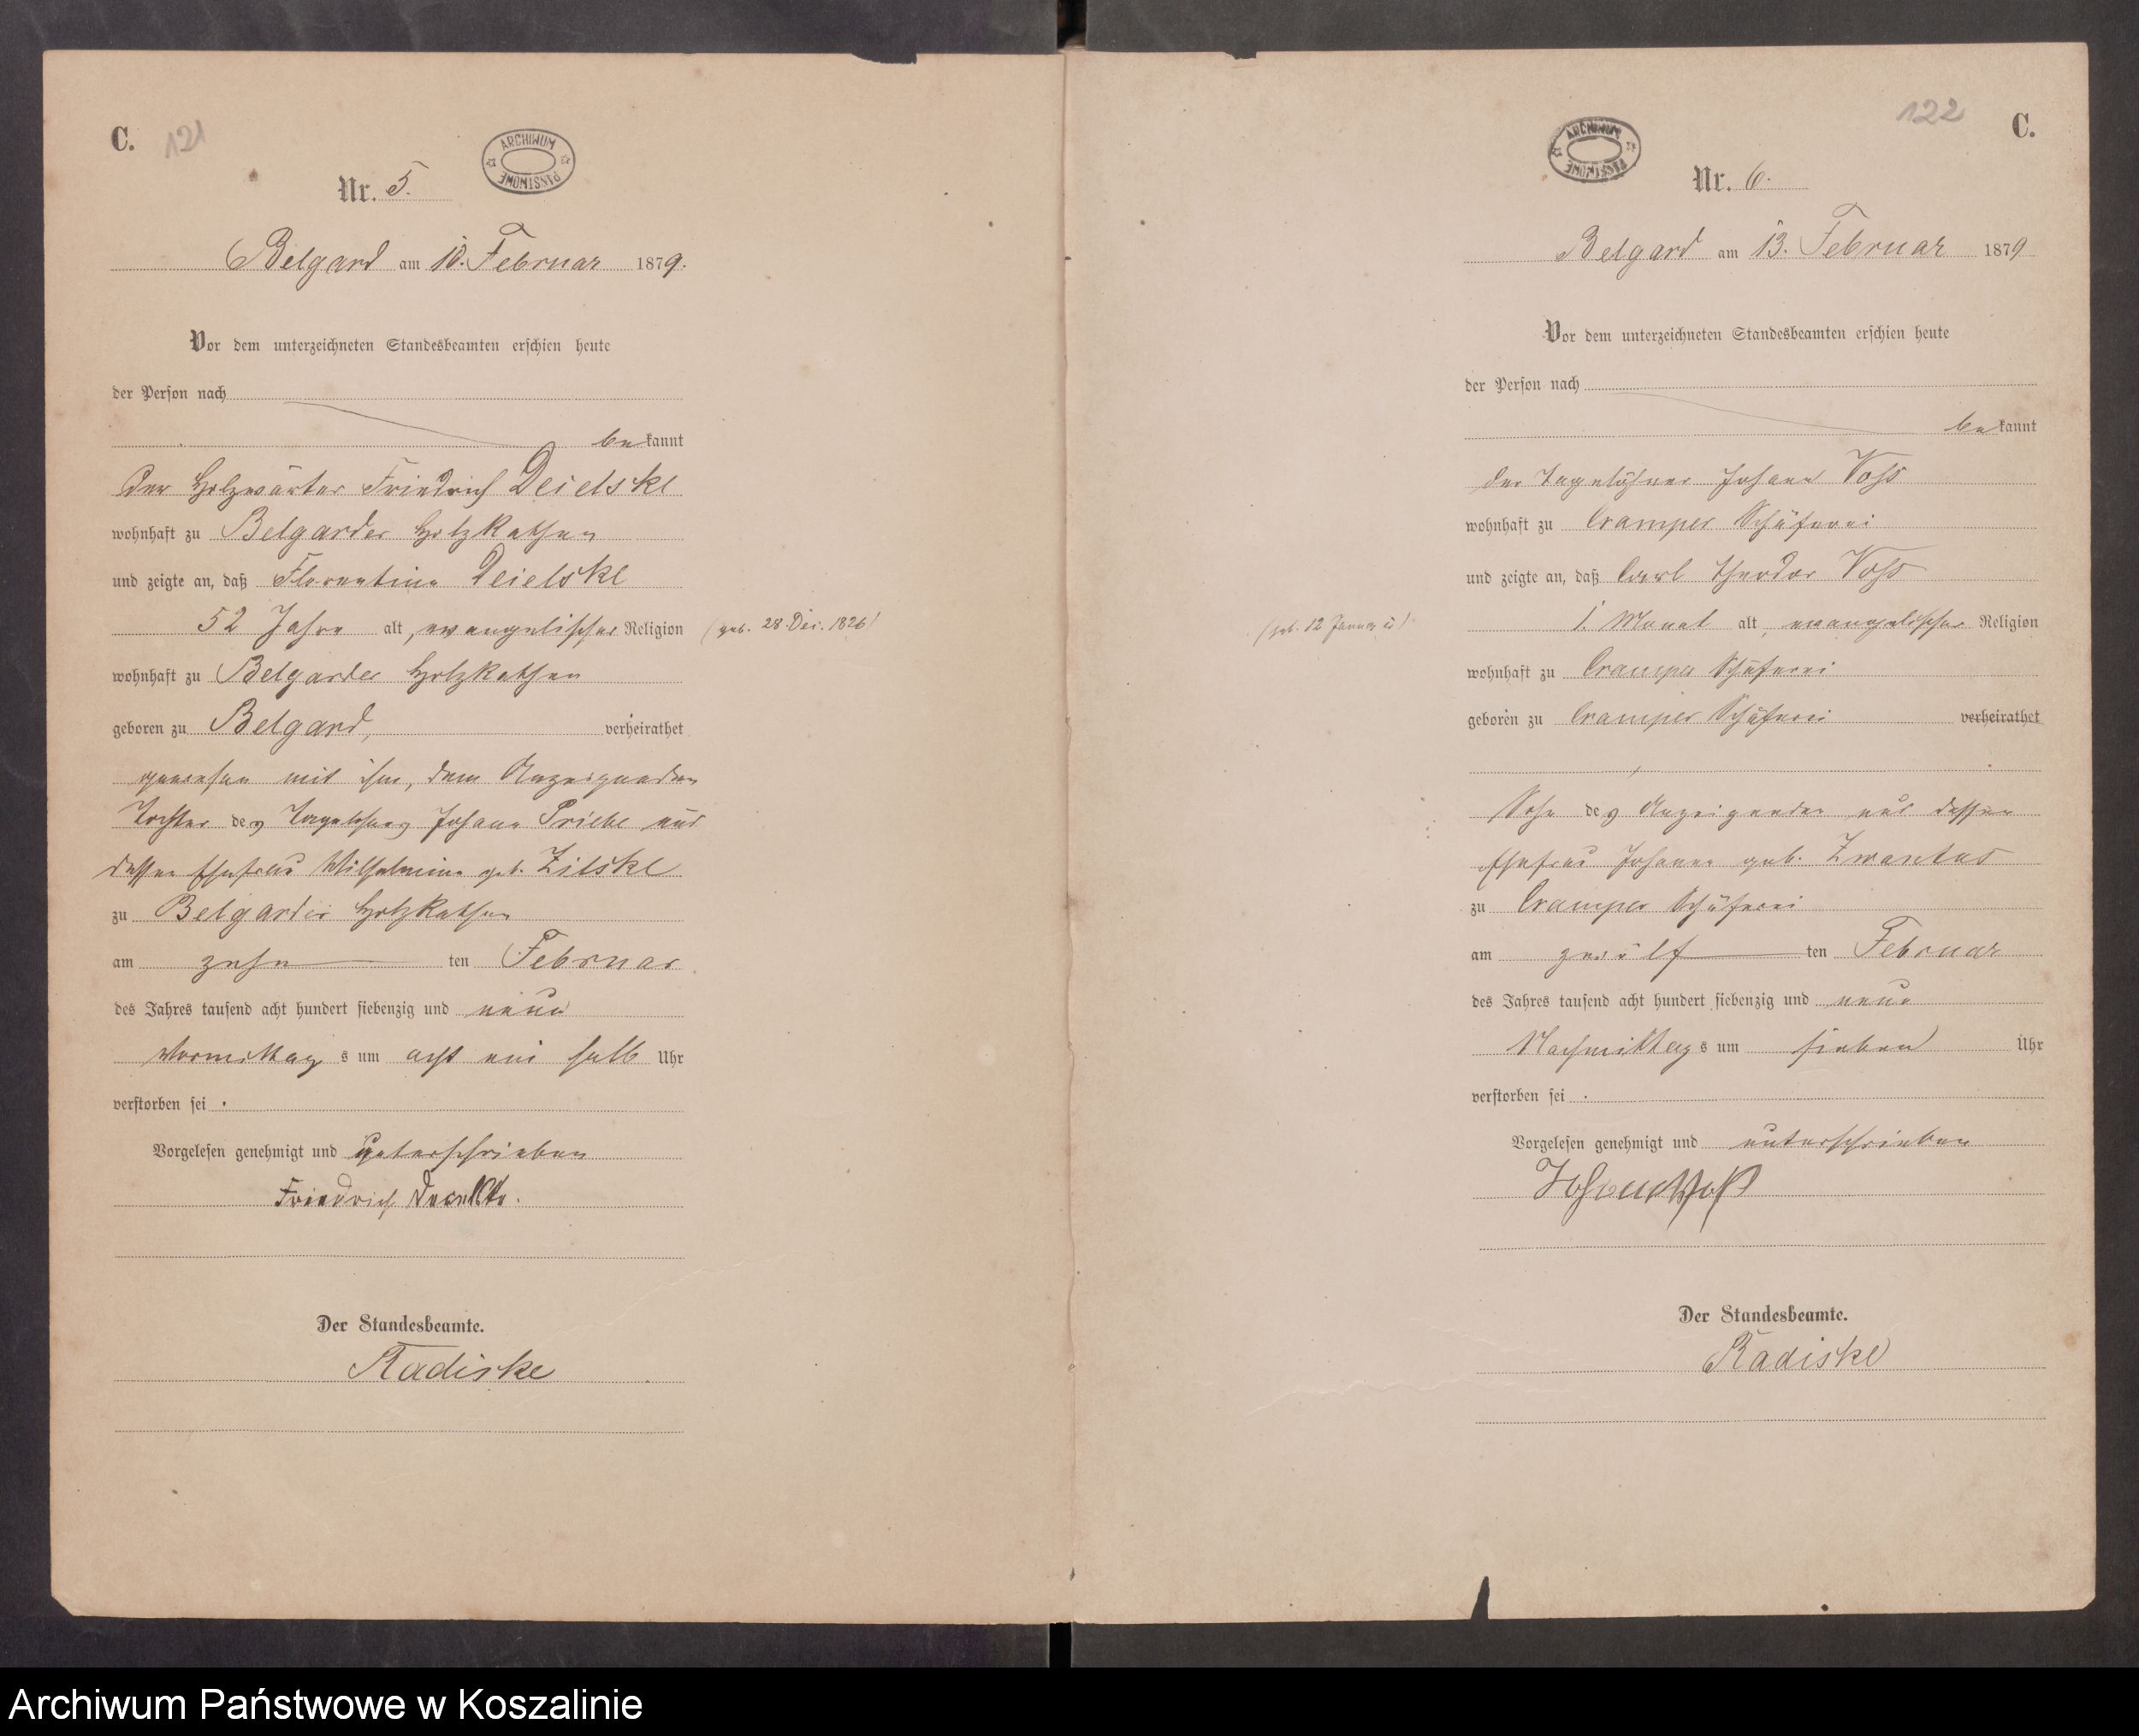 C. 121
ARCHIWUM PAŃSTWOWE
Nr. 5.
Belgard am 10. Februar 1879.
Vor dem unterzeichneten Standesbeamten erschien heute
der Person nach
bekannt
der Holzwärter Friedrich Deielske
wohnhaft zu Belgarder Holzkathen
und zeigte an, daß Florentine Deielske
52 Jahre alt, evangelischer Religion (geb. 28. Dec. 1826)
wohnhaft zu Belgarder Holzkathen
geboren zu Belgard, verheirathet
gewesen mit ihm, dem Anzeigenden
Tochter des Tagelöhners Johann Priebe und
dessen Ehefrau Wilhelmine geb. Zilske
zu Belgarder Holzkathen
am zehn ten Februar
des Jahres tausend acht hundert siebenzig und neun
Vormittags um acht ein halb Uhr
verstorben sei.
Vorgelesen genehmigt und unterschrieben
Friedrich
Der Standesbeamte.
Radiske
122 C.
ARCHIWUM PAŃSTWOWE
Nr. 6.
Belgard am 13. Februar 1879
Vor dem unterzeichneten Standesbeamten erschien heute
der Person nach
bekannt
der Tagelöhner Johann Voss
wohnhaft zu Cramper Schäferei
und zeigte an, daß Carl Theodor Voss
(geb. 12 Januar) 1. Monat alt, evangelischer Religion
wohnhaft zu Cramper Schäferei
geboren zu Cramper Schäferei verheirathet
Sohn des Anzeigenden und dessen
Ehefrau Johanne geb.
zu Cramper Schäferei
am zwölf ten Februar
des Jahres tausend acht hundert siebenzig und neun
Nachmittags um sieben Uhr
verstorben sei.
Vorgelesen genehmigt und unterschrieben
Johann Voß
Der Standesbeamte.
Radiske
Archiwum Państwowe w Koszalinie